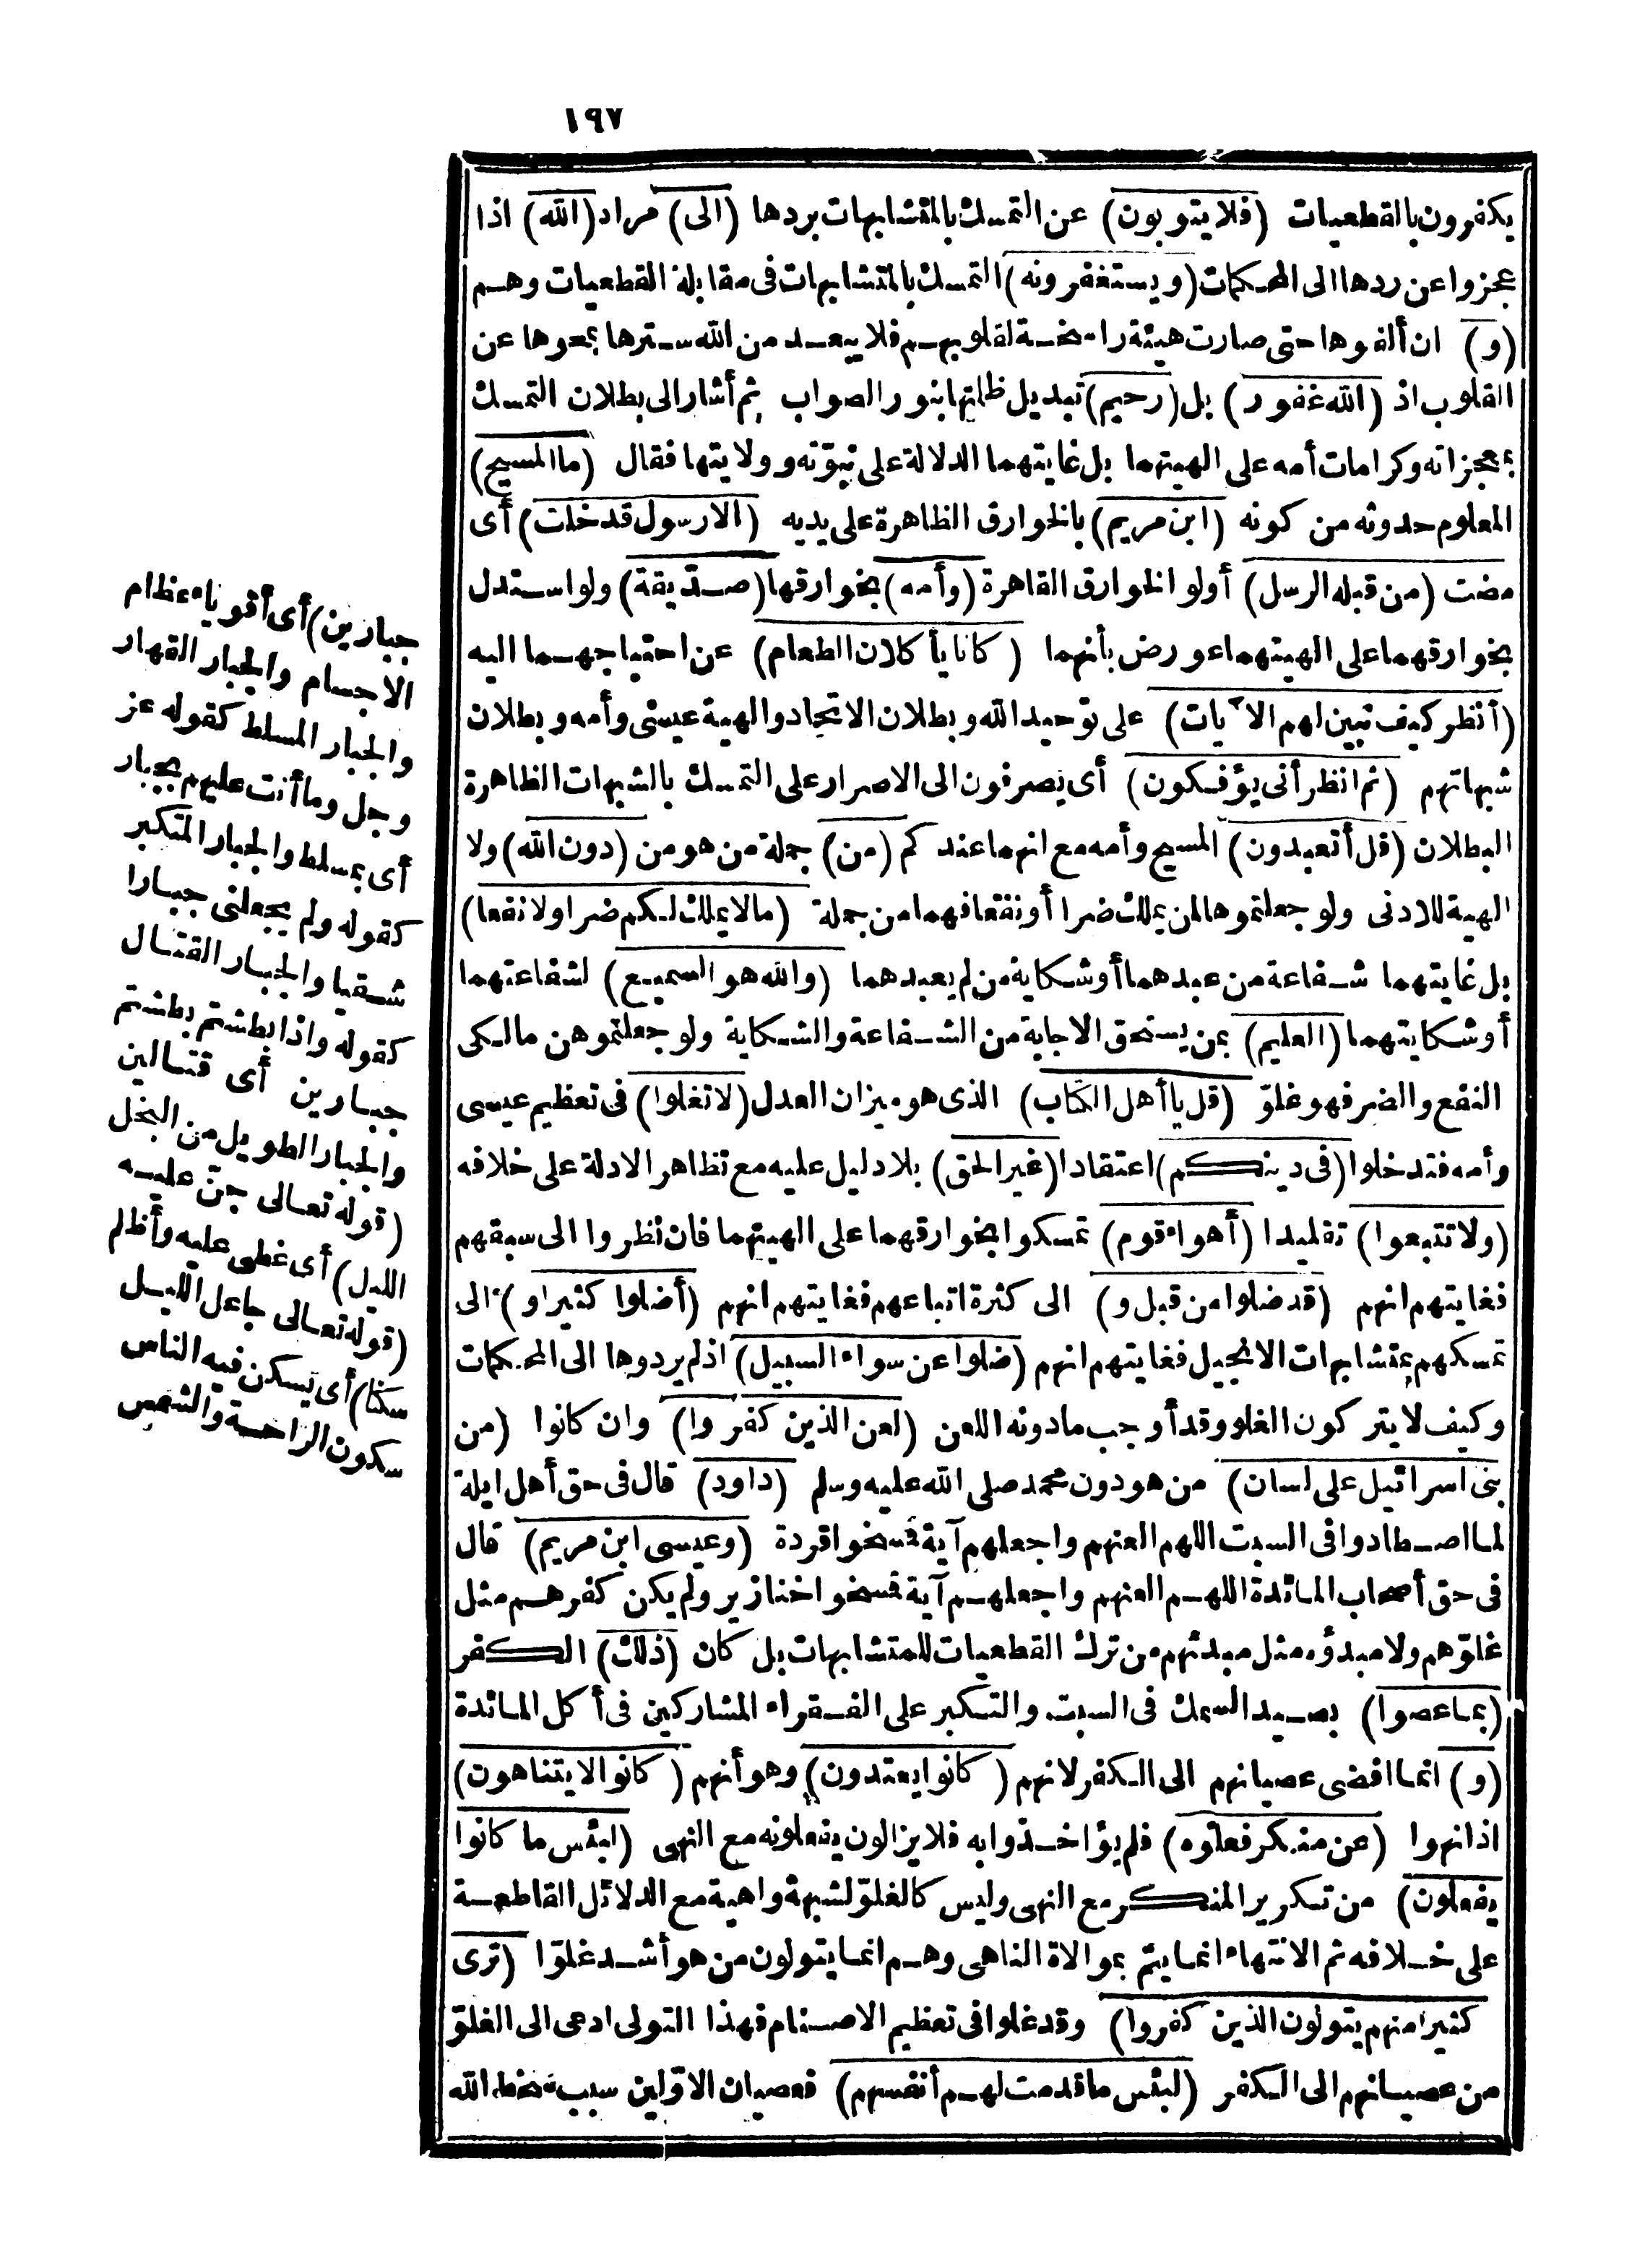 ١٩٧
يكفرون بالقطعيات (فلا يتوبون) عن التمسك بالمتشابهات بردها (الى) مراد (الله) اذا
عجزوا عن ردها الى المحكمات (ويستغفرونه) التمسك بالمتشابهات فى مقابلة القطعيات وهم
(و) ان ألفوها حتى صارت هيئة راسخة لقلوبهم فلا يبعد من الله سترها بمحوها عن
القلوب اذ (الله غفور) بل (رحيم) تبديل ظلمتها بنور الصواب ثم أشار الى بطلان التمسك
بمعجزاته وكرامات أمه على الهيتهما بل غايتهما الدلالة على نبوّته وولايتها فقال (ما المسيح)
المعلوم حدوثه من كونه (ابن مريم) بالخوارق الظاهرة على يديه (الا رسول قد خلت) أى
مضت (من قبله الرسل) أولو الخوارق القاهرة (وأمه) بخوارقها (صدّيقة) ولو استدل
بخوارقهما على الهيتهما عورض بأنهما (كانا يأكلان الطعام) عن احتياجهما اليه
(أنظر كيف نبين لهم الآيات) على توحيد الله وبطلان الاتحاد والهية عيسى وأمه وبطلان
شبهاتهم (ثم انظر أنى يؤفكون) أى يصرفون الى الاصرار على التمسك بالشبهات الظاهرة
البطلان (قل أتعبدون) المسيح وأمه مع انهما عندكم (من) جملة من هو من (دون الله) ولا
الهية للادنى ولو جعلتموها لمن يملك ضرا أو نفعا فهما من جملة (ما لا يملك لكم ضرا ولا نفعا)
بل غايتهما شفاعة من عبدهما أو شكاية من لم يعبدهما (والله هو السميع) لشفاعتهما
أو شكايتهما (العليم) بمن يستحق الاجابة من الشفاعة والشكاية ولو جعلتموهن مالكى
النفع والضر فهو غلوّ (قل يا أهل الكتاب) الذى هو ميزان العدل (لا تغلوا) فى تعظيم عيسى
وأمه فتدخلوا (فى دينكم) اعتقادا (غير الحق) بلا دليل عليه مع تظاهر الادلة على خلافه
(ولا تتبعوا) تقليدا (أهواء قوم) تمسكوا بخوارقهما على الهيتهما فان نظروا الى سبقهم
فغايتهم انهم (قد ضلوا من قبل و) الى كثرة اتباعهم فغايتهم انهم (أضلوا كثيرا و) الى
تمسكهم بمتشابهات الانجيل فغايتهم انهم (ضلوا عن سواء السبيل) اذ لم يردوها الى المحكمات
وكيف لا يتركون الغلو وقد أوجب ما دونه اللعن (لعن الذين كفروا) وان كانوا (من
بنى اسرائيل على لسان) من هو دون محمد صلى الله عليه وسلم (داود) قال فى حق أهل ايلة
لما اصطادوا فى السبت اللهم العنهم واجعلهم آية فمسخوا قردة (وعيسى ابن مريم) قال
فى حق أصحاب المائدة اللهم العنهم واجعلهم آية فمسخوا خنازير ولم يكن كفرهم مثل
غلوّهم ولا مبدؤه مثل مبدئهم من ترك القطعيات للمتشابهات بل كان (ذلك) الكفر
(بما عصوا) بصيد السمك فى السبت والتكبر على الفقراء المشاركين فى أكل المائدة
(و) انما افضى عصيانهم الى الكفر لانهم (كانوا يعتدون) وهو أنهم (كانوا لا يتناهون)
اذا نهوا (عن منكر فعلوه) فلم يؤاخذوا به فلا يزالون يفعلونه مع النهى (لبئس ما كانوا
يفعلون) من تكرير المنكر مع النهى وليس كالغلوّ لشبهة واهية مع الدلائل القاطعة
على خلافه ثم الانتهاء انما يتم بموالاة الناهى وهم انما يتولون من هو أشد غلوّا (ترى
كثيرا منهم يتولون الذين كفروا) وقد غلوا فى تعظيم الاصنام فهذا التولى ادعى الى الغلوّ
من عصيانهم الى الكفر (لبئس ما قدمت لهم أنفسهم) فعصيان الاوّلين سبب سخط الله
جبارين) أى أقوياء عظام
الاجسام والجبار القهار
والجبار المسلط كقوله عز
وجل وما أنت عليهم بجبار
أى بمسلط والجبار المتكبر
كقوله ولم يجعلنى جبارا
شقيا والجبار القتال
كقوله واذا بطشتم بطشتم
جبارين أى قتالين
والجبار الطويل من النخل
(قوله تعالى جنّ عليه
الليل) أى غطى عليه وأظلم
(قوله تعالى جاعل الليل
سكنا) أى يسكن فيه الناس
سكون الراحة والشمس